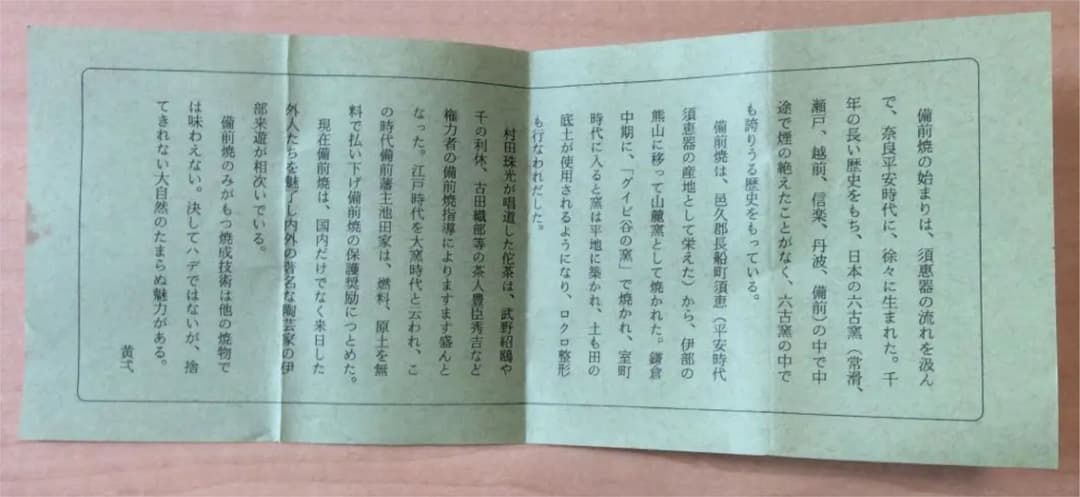 備前焼の始まりは、須恵器の流れを汲ん
で、奈良平安時代に、徐々に生まれた。千
年の長い歴史をもち、日本の六古窯(常滑、
瀬戸、越前、信楽、丹波、備前)の中で中
途で煙の絶えたことがなく、六古窯の中で
も誇りうる歴史をもっている。
備前焼は、邑久郡長船町須恵(平安時代
須恵器の産地として栄えた)から、伊部の
熊山に移って山麓窯として焼かれた。鎌倉
中期に、「グイビ谷の窯」で焼かれ、室町
時代に入ると窯は平地に築かれ、土も田の
底土が使用されるようになり、ロクロ整形
も行なわれだした。
村田珠光が唱道した佗茶は、武野紹鴎や
千の利休、古田織部等の茶人豊臣秀吉など
権力者の備前焼指導によりますます盛んと
なった。江戸時代を大窯時代と云われ、こ
の時代備前藩主池田家は、燃料、原土を無
料で払い下げ備前焼の保護奨励につとめた。
現在備前焼は、国内だけでなく来日した
外人たちを魅了し内外の著名な陶芸家の伊
部来遊が相次いでいる。
備前焼のみがもつ焼成技術は他の焼物で
は味わえない。決してハデではないが、捨
てきれない大自然のたまらぬ魅力がある。
黄弌